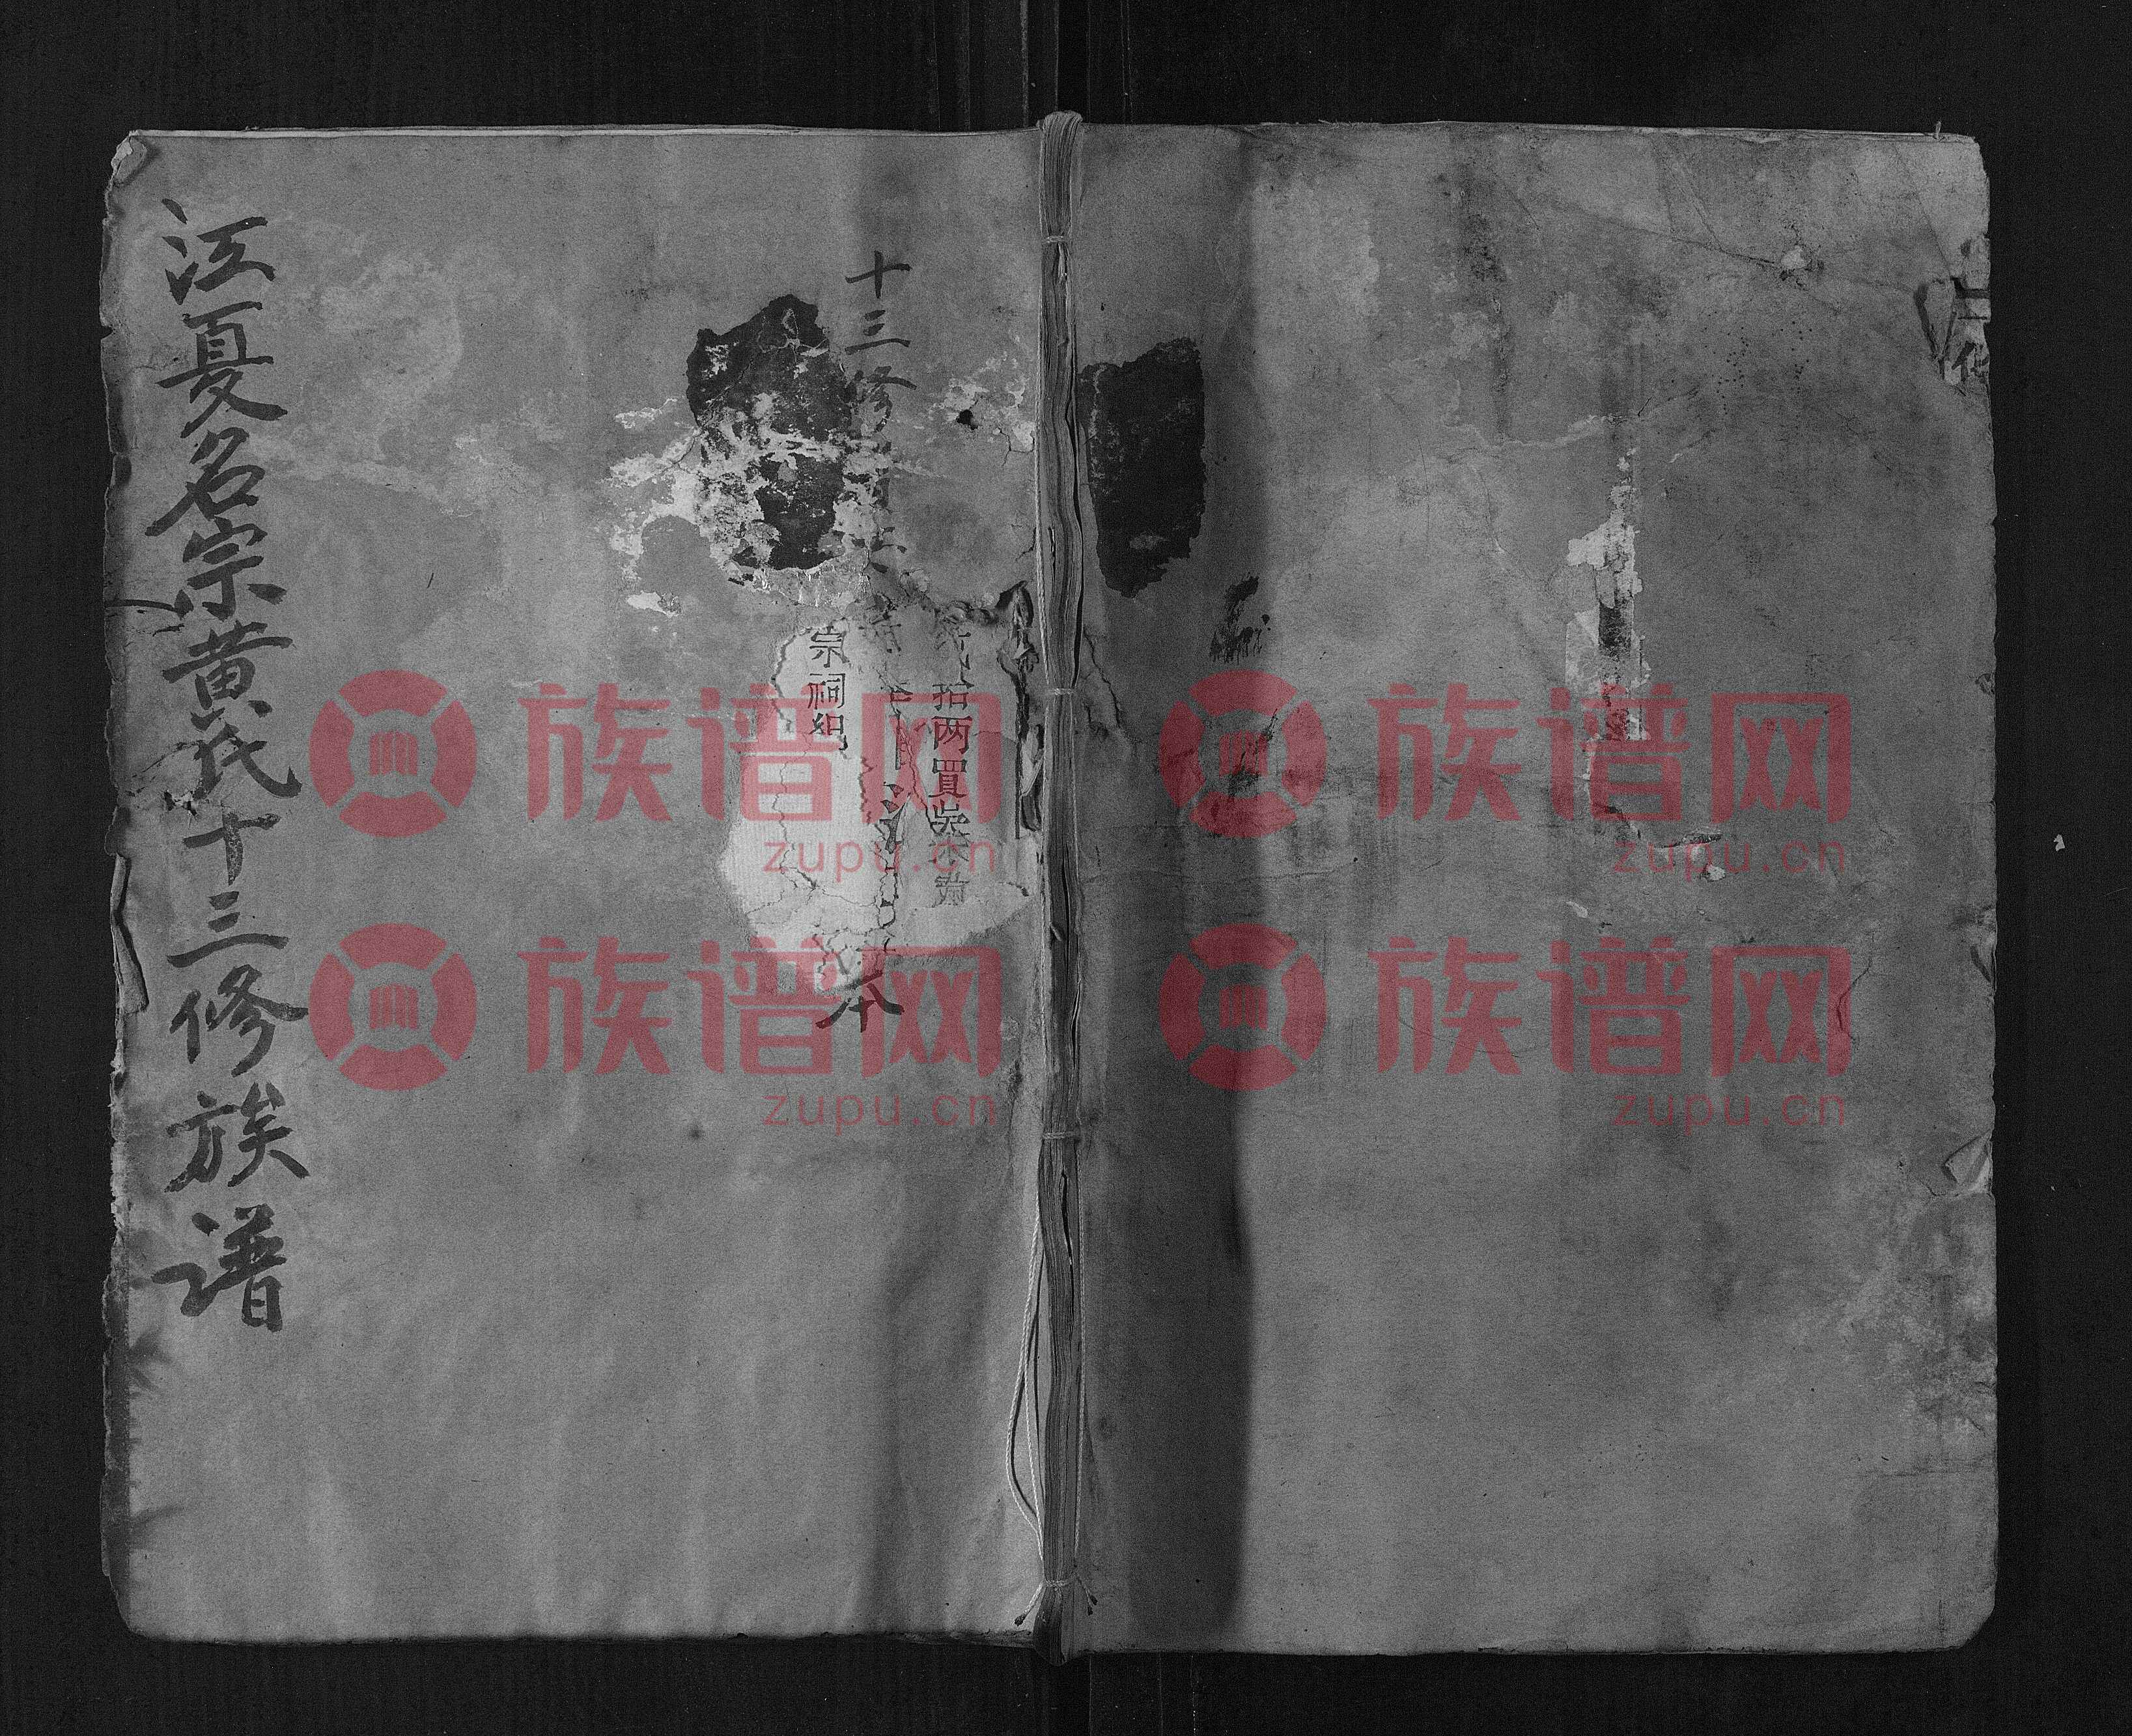 江夏名宗黄氏十三修族谱
十三修
本
两買
宗祠
族谱网
zupu.cn
族谱网
zupu.cn
族谱网
zupu.cn
族谱网
zupu.cn